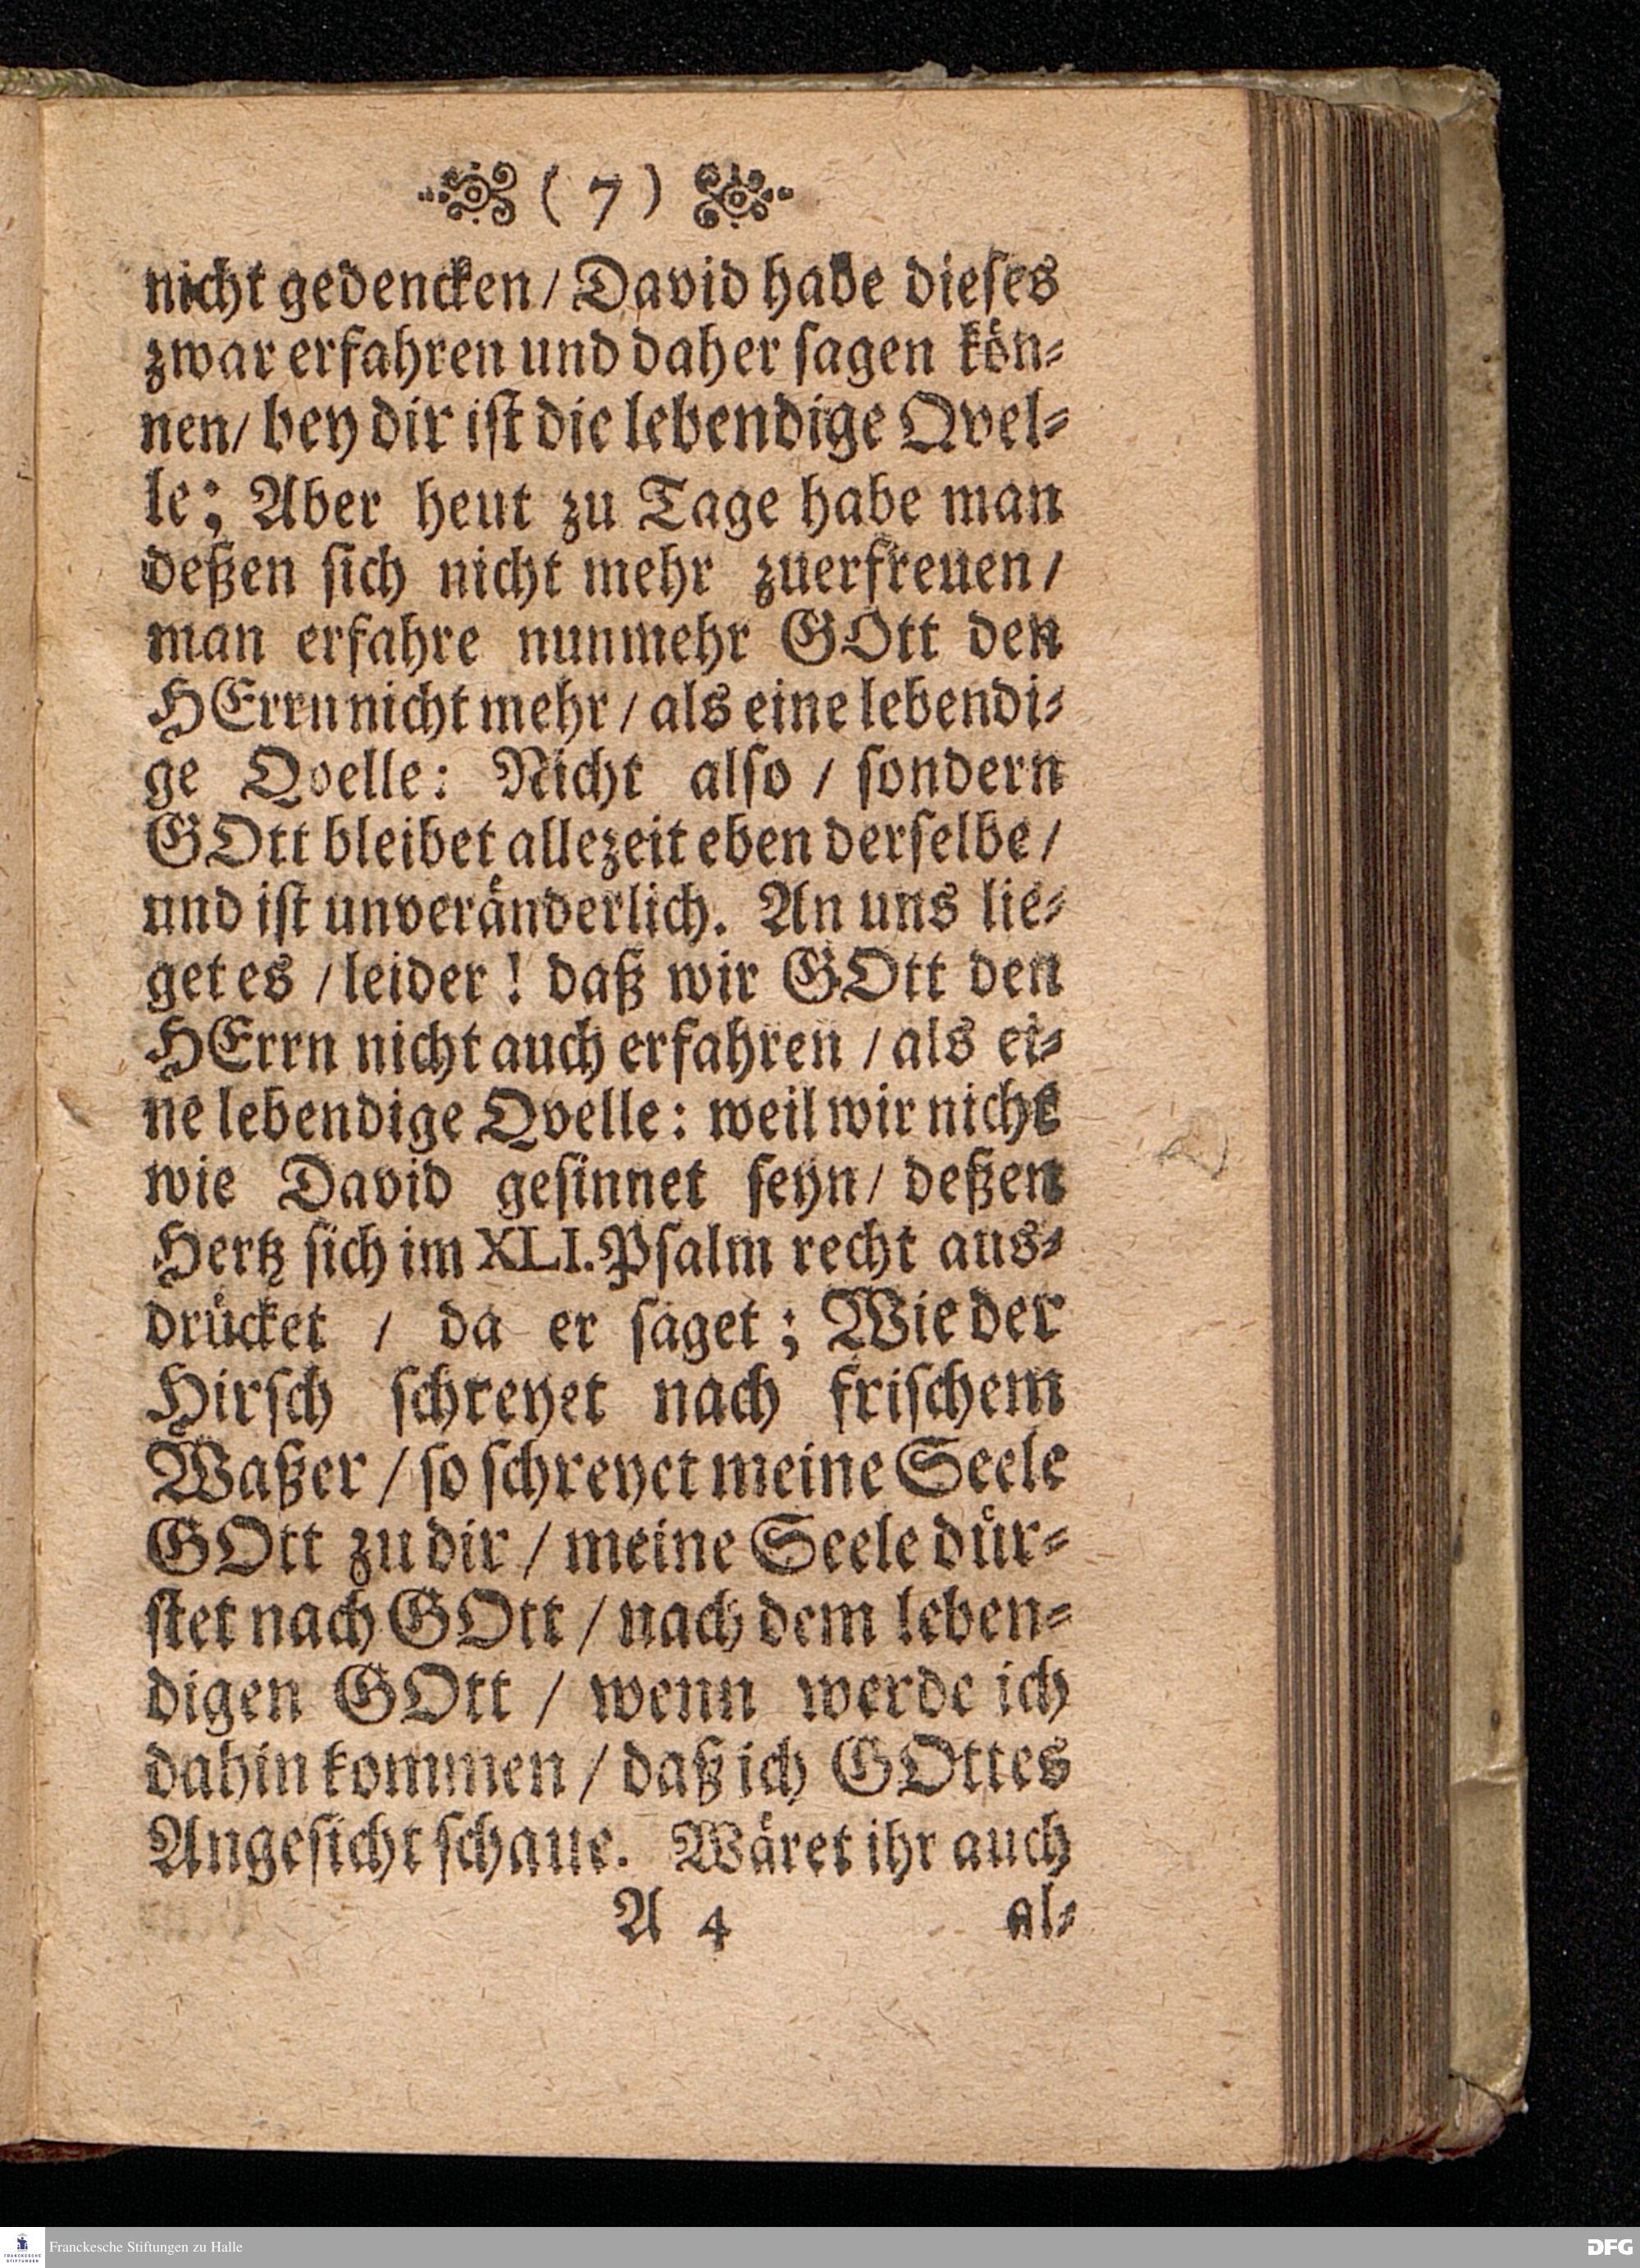 ( 7 )
nicht gedencken / David habe dieses
zwar erfahren und daher sagen kön-
nen / bey dir ist die lebendige Qvel-
le; Aber heut zu Tage habe man
deßen sich nicht mehr zuerfreuen /
man erfahre nunmehr GOtt den
HErrn nicht mehr / als eine lebendi-
ge Qvelle: Nicht also / sondern
GOtt bleibet allezeit eben derselbe /
und ist unveränderlich. An uns lie-
get es / leider! daß wir GOtt den
HErrn nicht auch erfahren / als ei-
ne lebendige Qvelle: weil wir nicht
wie David gesinnet seyn / deßen
Hertz sich im XLI. Psalm recht aus-
drücket / da er saget; Wie der
Hirsch schreyet nach frischem
Waßer / so schreyet meine Seele
GOtt zu dir / meine Seele dür-
stet nach GOtt / nach dem leben-
digen GOtt / wenn werde ich
dahin kommen / daß ich GOttes
Angesicht schaue. Wäret ihr auch
A 4 al-
FRANCKESCHE STIFTUNGEN
Franckesche Stiftungen zu Halle
DFG